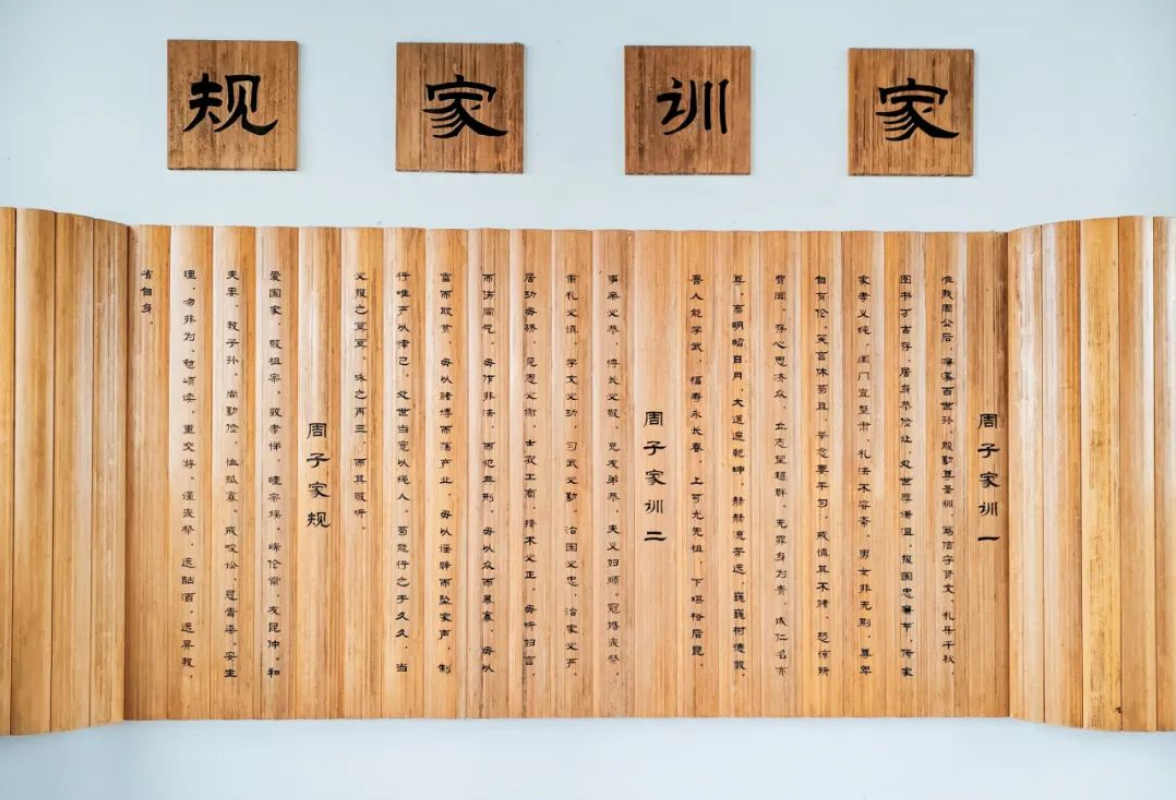 家训家规
周子家训一
维我周公后，濂溪百世孙，殷勤尊圣训，笃信守贤文，礼乐千秋
图书万古存，居身恭俭让，处世厚谦温，报国忠廉节，传家
家孝义纯，闺门宜整肃，礼法不容紊，男女非无别，尊卑
自有伦，笑言休苟且，举念要平匀，戒慎其不睹，恐惧所
弗闻，存心思济众，立志望超群，无罪身为贵，成仁名亦
尊，高明昭日月，大道遍乾坤，赫赫流芳远，巍巍树德敦，
吾人能学武，福寿永长春，上可光先祖，下堪裕后昆。
周子家训二
事亲必恭，傅长必敬，兄友弟恭，夫义妇顺，冠婚丧祭，
肃礼必慎，学文必功，习武必勤，治国必忠，治家必严
居功毋骄，见恶必，士农工商，择术必正，毋听妇言，
而伤同气，毋作非法，而犯典刑，毋以众而暴寡，毋以
富而欺贫，毋以赌博而荡产业，毋以淫辟而坠家声，制
行唯严以律己，处世当宽以绳人，苟能行之于久久，当
必报之冥冥，咏之再三，而其敬听。
周子家规
爱国家，敬祖宗，敦孝悌，睦宗族，端伦常，友昆仲，和
夫妻，教子孙，尚勤俭，恤孤寡，戒讼，忌毒染，安生
理，勿非为，勉颂读，重交游，谨丧祭，远酗酒，远异教，
省自身。